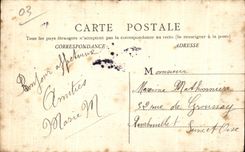 03
CARTE POSTALE
Tous les pays étrangers n'acceptent pas la correspondance au recto (Se renseigner à la poste)
CORRESPONDANCE
ADRESSE
Monsieur
Bonjour affectueux
Amitiés
Marie M
Maxime
rue de Groussay
Seine et Oise